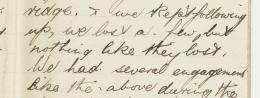 ridge. & we kept following
up, we lost a few, but
nothing like they lost.
We had several engagement
like the above during the